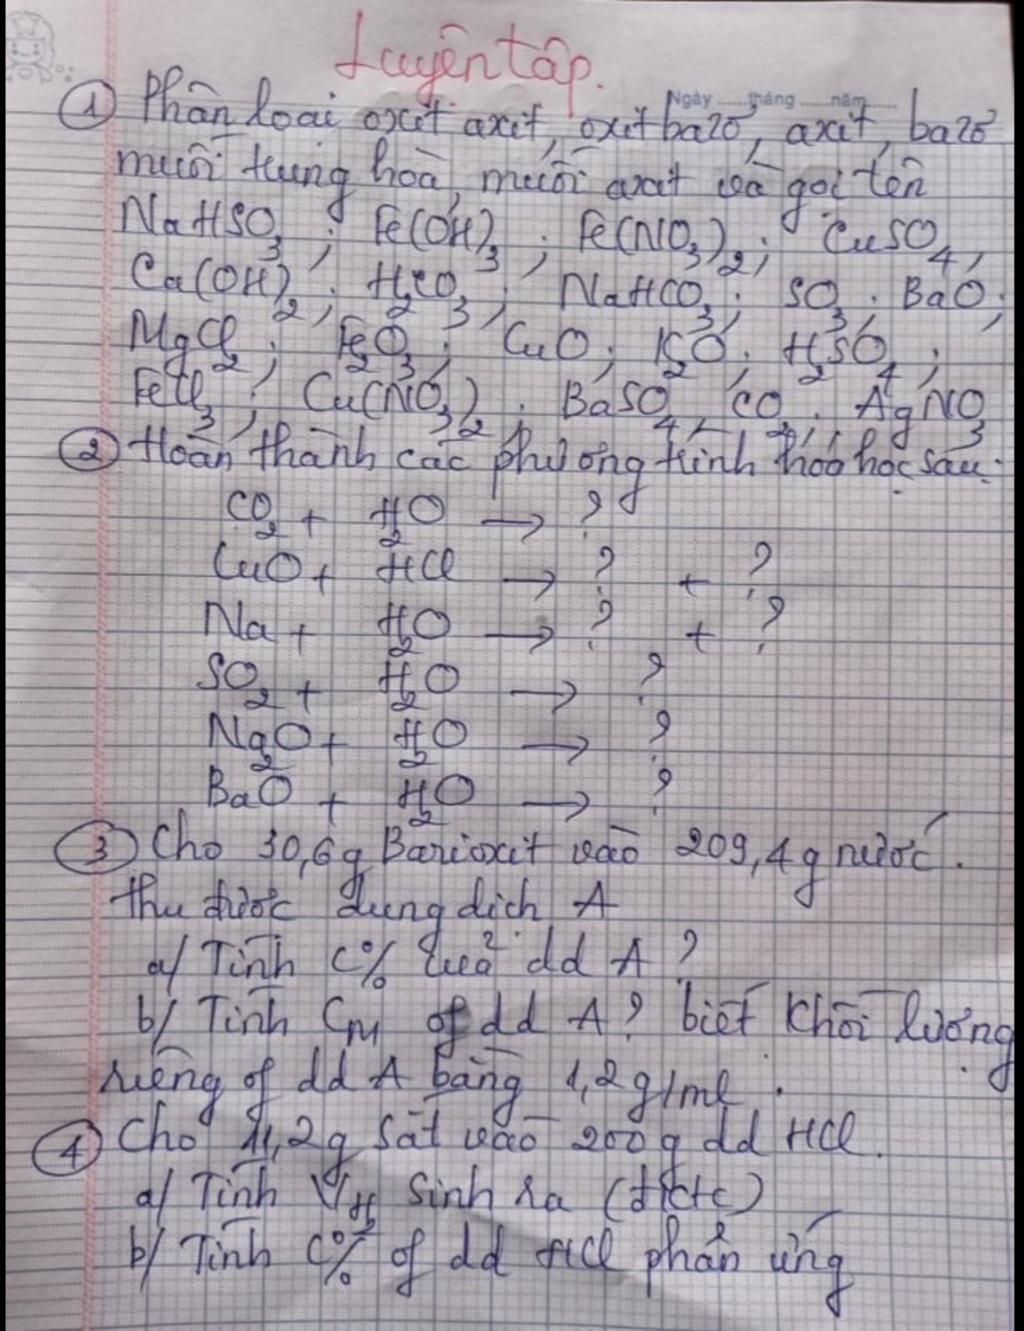 Luyện tập.
Ngày ......tháng ......năm......
① Phân loại oxit axit, oxit bazơ, axit, bazơ
muối trung hoà, muối axit và gọi tên
NaHSO₃ ; Fe(OH)₃ ; Fe(NO₃)₂ ; CuSO₄ ;
Ca(OH)₂ ; H₂CO₃ ; NaHCO₃ ; SO₃ ; BaO ;
MgCl₂ ; Fe₂O₃ ; CuO ; K₂O ; H₂SO₄ ;
FeCl₃ ; Cu(NO₃)₂ ; BaSO₄ ; CO₂ ; AgNO₃
② Hoàn thành các phương trình hoá học sau:
CO₂ + H₂O → ?
CuO + HCl → ? + ?
Na + H₂O → ? + ?
SO₂ + H₂O → ?
Na₂O + H₂O → ?
BaO + H₂O → ?
③ Cho 30,6g Bari oxit vào 209,4g nước.
thu được dung dịch A
a/ Tính C% của dd A ?
b/ Tính C_M of dd A ? biết khối lượng
riêng of dd A bằng 1,2g/ml .
④ Cho 11,2g sắt vào 200g dd HCl.
a/ Tính V_H₂ sinh ra (đktc)
b/ Tính C% of dd HCl phản ứng